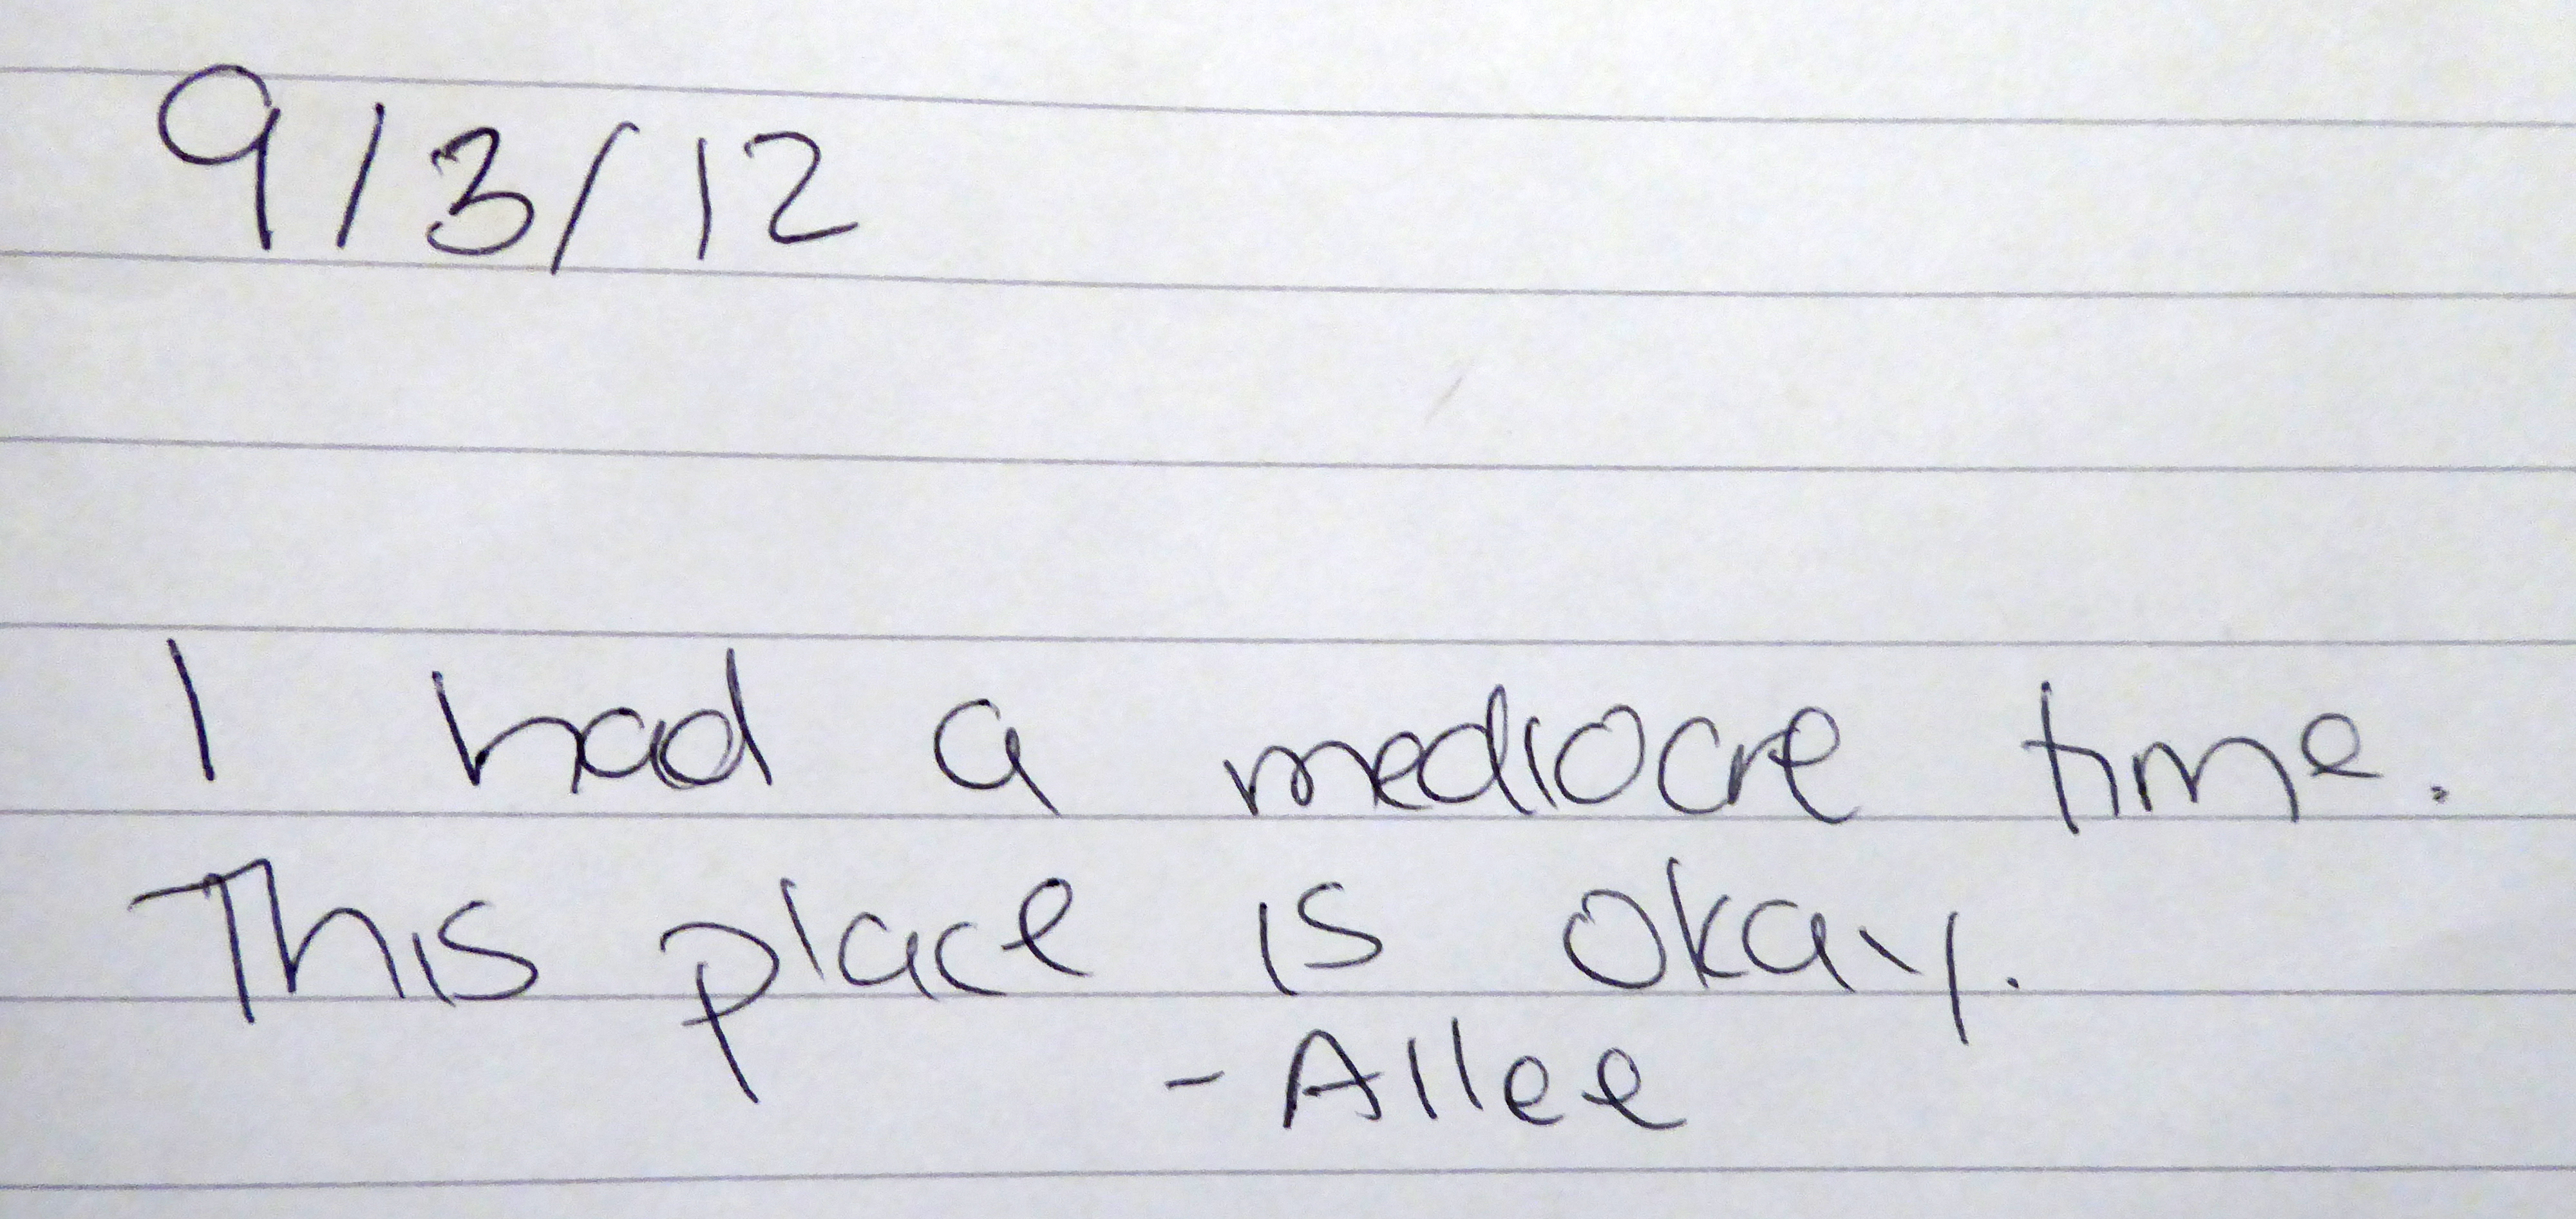 9/3/12
I had a mediocre time.
This place is okay.
- Allee